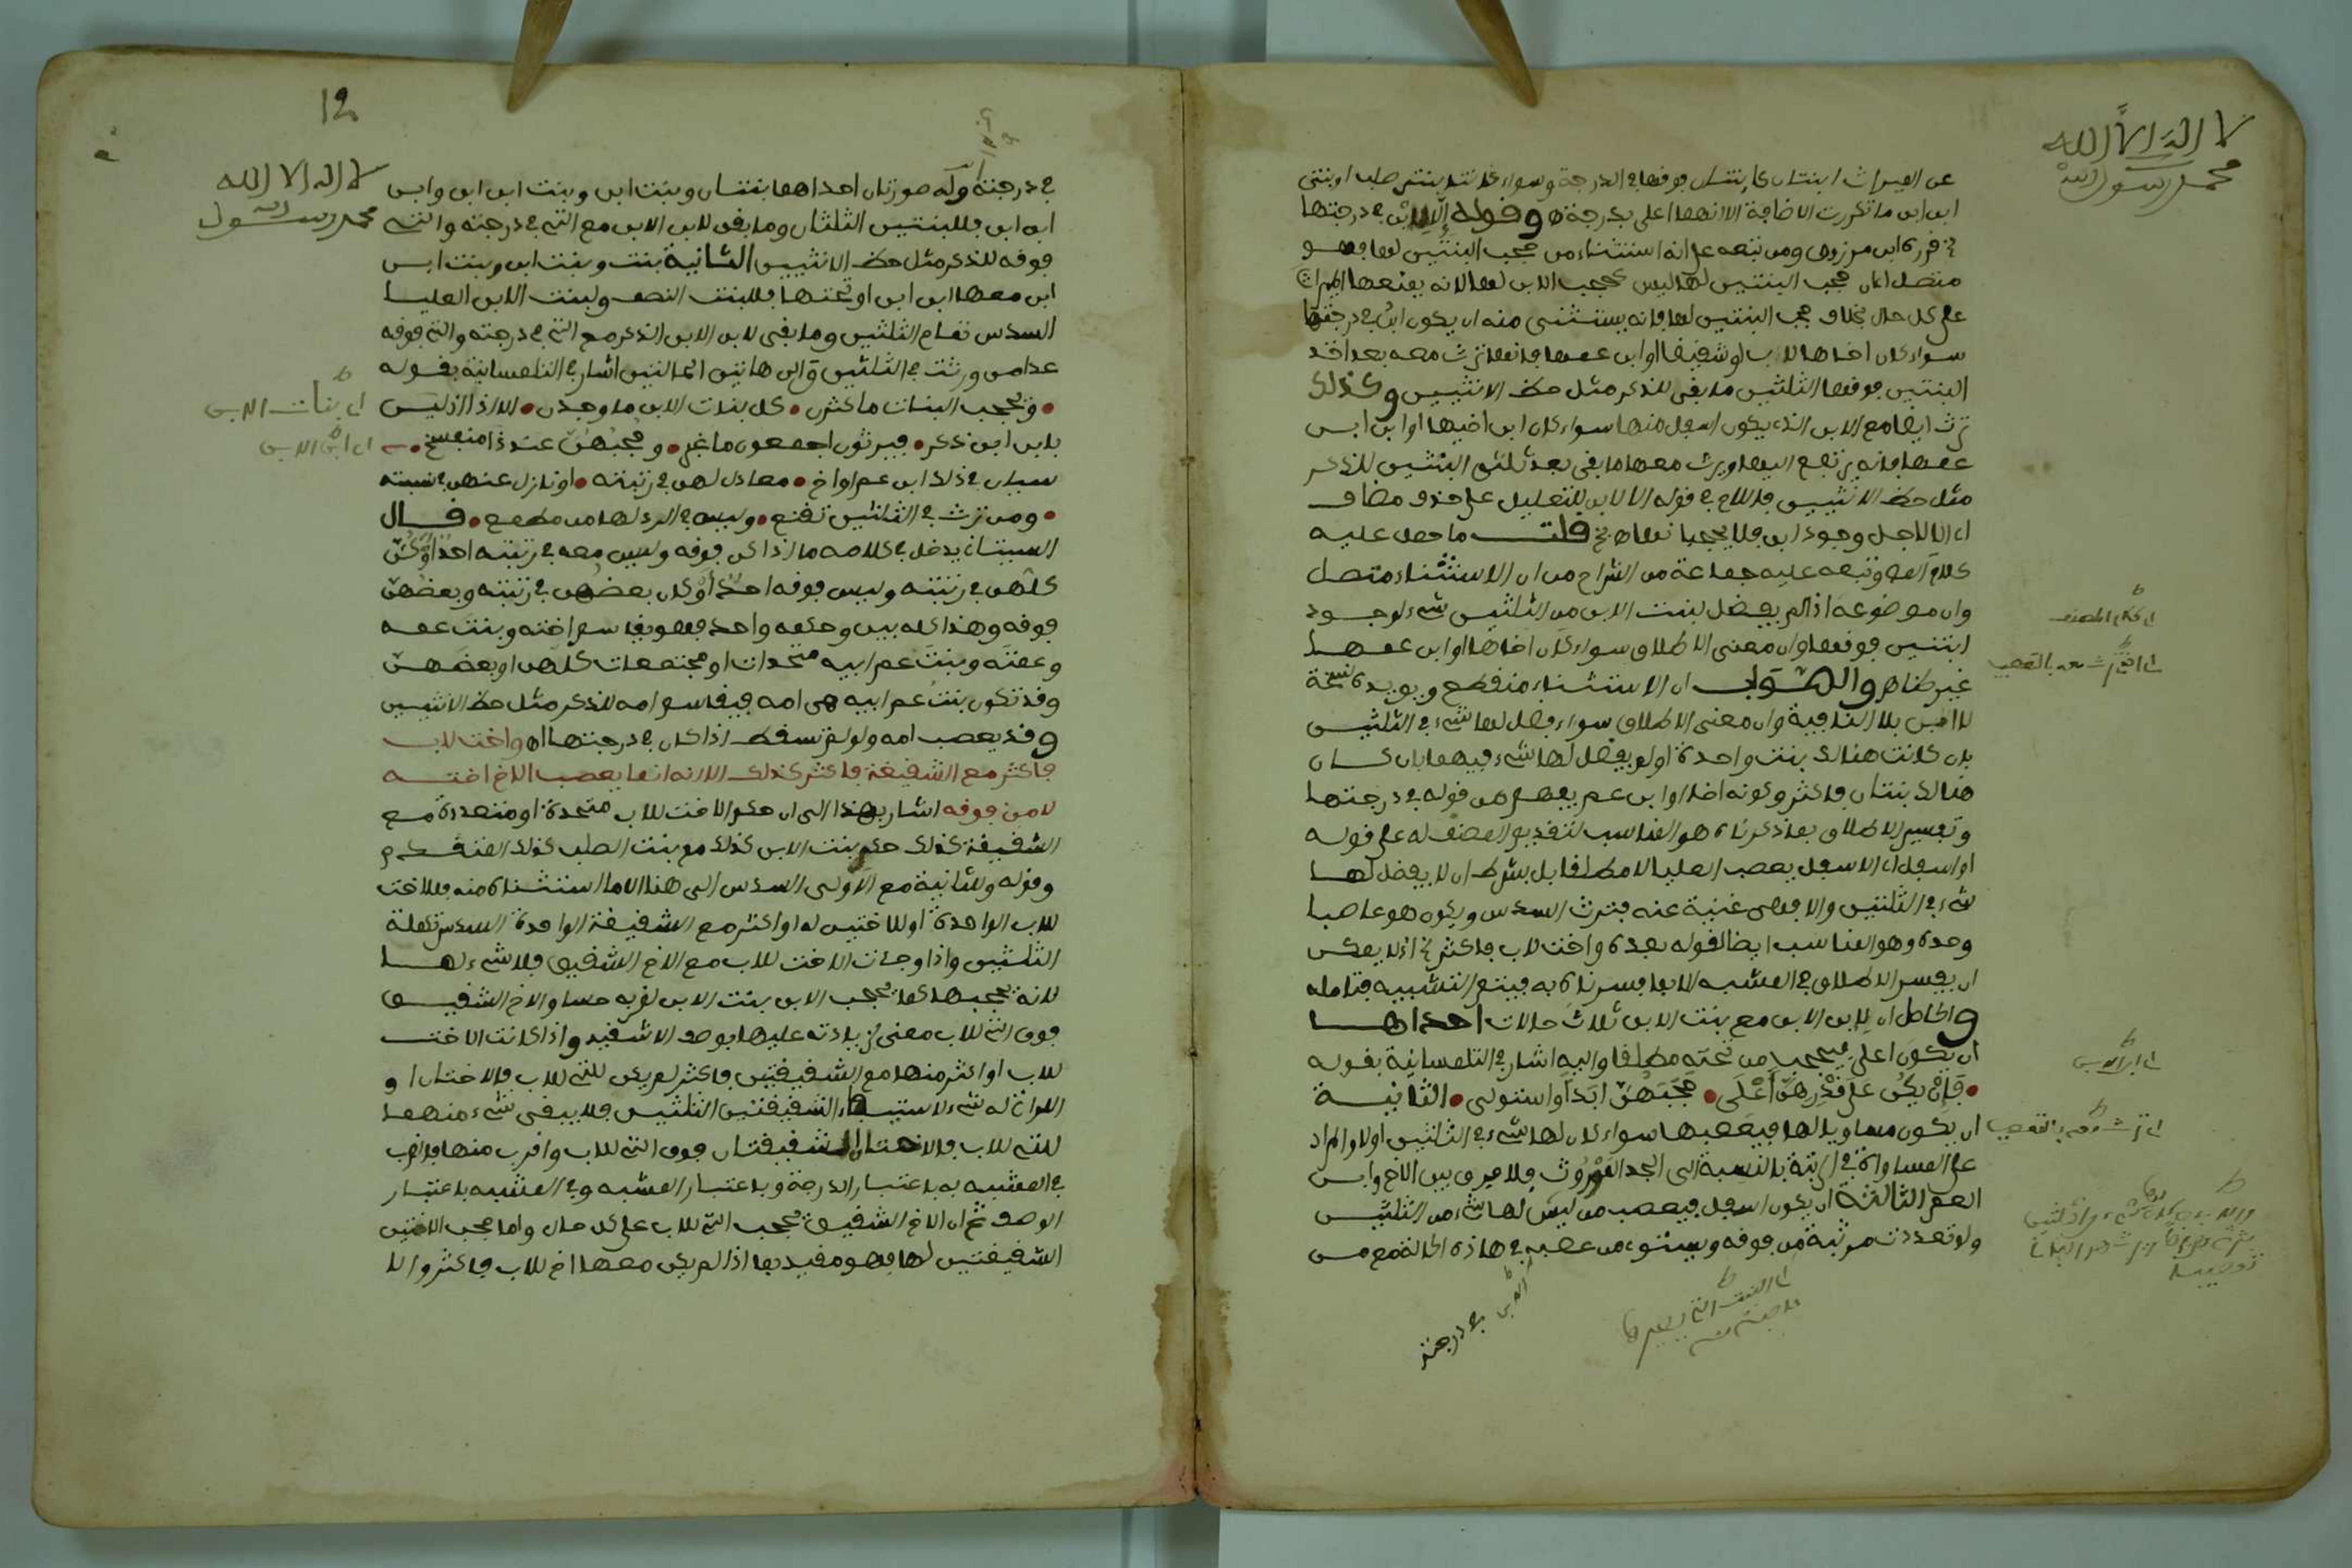 لا اله الا الله
محمد رسول الله
عن الميراث ابنتان فوقها في الدرجة وسواء كانتا بنتي صلب او بنتي
ابن ابن ما تكررت الاضافة الا انهما اعلى بدرجة وقوله الا لابن في درجتها
قرره ابن مرزوق ومن تبعه على انه استثناء من حجب البنتين لها فهو
متصل اي ان حجب البنتين لها ليس كحجب الابن لها لانه يمنعها الميراث
على كل حال بخلاف حجب البنتين لها فانه يستثنى منه ان يكون ابن في درجتها
سواء كان اخاها لاب او شقيقا او ابن عمها فانها ترث معه بعد اخذ
البنتين فوقها الثلثين ما بقي للذكر مثل حظ الانثيين وكذلك
ترث ايضا مع الابن الذي يكون اسفل منها سواء كان ابن اخيها او ابن ابن
عمها فانه يرتفع اليها ويرث معها ما بقي بعد ثلثي البنتين للذكر
مثل حظ الانثيين فاللام في قوله الا لابن للتعليل على حذف مضاف
اي الا لاجل وجود ابن فلا يحجبانها قلت ما حمل عليه
كلام وتبعه عليه جماعة من الشراح من ان الاستثناء متصل
وان موضوعه اذا لم يفضل لبنت الابن من الثلثين شيء لوجود
ابنتين فوقها وان معنى الاطلاق سواء كان اخاها او ابن عمها
غير ظاهر والصواب ان الاستثناء منقطع ويؤيده نسخة
لا ابن بلا النافية وان معنى الاطلاق سواء فضل لها شيء في الثلثين
بان كانت هنالك بنت واحدة او لم يفضل لها شيء فيهما بان كان
هنالك بنتان فاكثر وكونه اخا او ابن عم يفهم من قوله في درجتها
وتفسير الاطلاق بما ذكرناه هو المناسب لتقديم المصنف له على قوله
او اسفل اي الاسفل يعصب العليا لا مطلقا بل بشرط ان لا يفضل لها
شيء في الثلثين والا فهي غنية عنه فترث السدس ويكون هو عاصبا
وحده وهو المناسب ايضا لقوله بعده واخت لاب فاكثر اذ لا يمكن
ان يفسر الاطلاق في المشبه الا بما فسرناه به فيتم التشبيه فتامله
والحاصل ان لابن الابن مع بنت الابن ثلاث حالات احداها
ان يكون اعلى فيحجب من تحته مطلقا واليه اشار في التلمسانية بقوله
• فان يكن على قدرهن اعلى • حجبهن ابدا واستولى • الثانية
ان يكون مساويا لها فيعصبها سواء كان لها شيء في الثلثين اولا والمراد
على المساواة في الرتبة بالنسبة الى الجد الموروث فلا فرق بين الاخ وابن
العم الثالثة ان يكون اسفل فيعصب من ليس لها شيء من الثلثين
ولو تعددت مرتبة من فوقه ويستوي من عصبه في هذه الحالة مع من
اي كلام المصنف
اي ابن الابن
في درجته
12
لا اله الا الله
محمد رسول
في درجته وله صورتان احداهما بنتان وبنت ابن وبنت ابن ابن وابن
ابن ابن فللبنتين الثلثان وما بقي لابن الابن مع التي في درجته والتي
فوقه للذكر مثل حظ الانثيين الثانية بنت وبنت ابن وبنت ابن
ابن معها ابن ابن او تحتها فللبنت النصف ولبنت الابن العليا
السدس تمام الثلثين وما بقي لابن الابن الذكر مع التي في درجته والتي فوقه
عدا من ورثت في الثلثين والى هاتين الحالتين اشار في التلمسانية بقوله
• وتحجب البنات ما كثرن • كل بنات الابن ما وجدن • الا اذا ليس
بابن ابن ذكر • فيرثون اجمعون ما غبر • وحجبهن عند ذا منفسخ •
سيان في ذلك ابن عم او اخ • معادل لهن في رتبته • او نازل عنهن في نسبته
• ومن ترث في الثلثين تقنع • وليس في الرد لها من مطمع • قال
السيتاني يدخل في كلامه ما اذا كن فوقه وليس معه في رتبته احد او كن
كلهن في رتبته وليس فوقه احد او كان بعضهن في رتبته وبعضهن
فوقه وهذا كله بين وحكمه واحد فهو يقاسم اخته وبنت عمه
وعمته وبنت عم ابيه متحدات او مجتمعات كلهن او بعضهن
وقد تكون بنت عم ابيه هي امه فيقاسم امه للذكر مثل حظ الانثيين
وقد يعصب امه ولولاه تسقط اذا كان في درجتها اه واخت لاب
فاكثر مع الشقيقة فاكثر كذلك الا انه انما يعصب الاخ اخته
لا من فوقه اشار بهذا الى ان حكم الاخت للاب متحدة او متعددة مع
الشقيقة كذلك حكم بنت الابن كذلك مع بنت الصلب كذلك المتقدم
وقوله وللثانية مع الاولى السدس الى هنا الا ما استثناه منه فللاخت
للاب الواحدة او للاختين له او اكثر مع الشقيقة الواحدة السدس تكملة
الثلثين واذا وجدت الاخت للاب مع الاخ الشقيق فلا شيء لها
لانه يحجبها كما يحجب الابن بنت الابن لقربه حسا والاخ الشقيق
فوق التي للاب معنى لزيادته عليها بوصف الاشقيه واذا كانت الاخت
للاب او اكثر منها مع الشقيقتين فاكثر لم يكن للتي للاب فالاختان او
اللواتي له شيء لاستيفاء الشقيقتين الثلثين فلا يبقى شيء منهما
للتي للاب فالاختان الشقيقتان فوق التي للاب واقرب منها فالقرب
في المشبه به باعتبار الدرجة وباعتبار المشبه وفي المشبه باعتبار
الوصف ثم ان الاخ الشقيق يحجب التي للاب على كل حال واما حجب الاختين
الشقيقتين لها فهو مقيد بما اذا لم يكن معها اخ للاب فاكثر والا
اي بنات الابن
اي ابن الابن